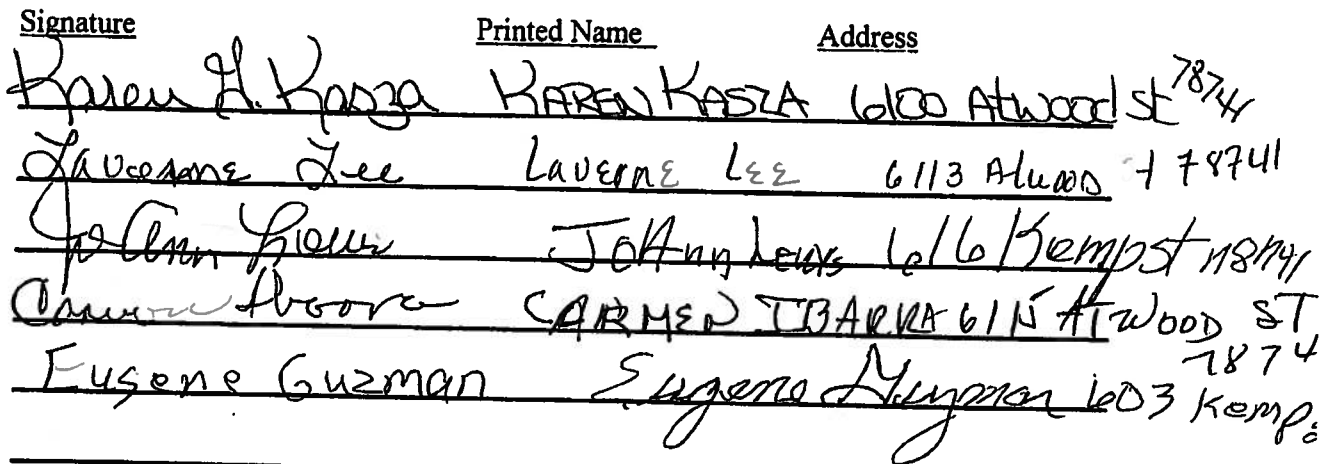 Signature Printed Name Address
Karen G. Kasza KAREN KASZA 6100 Atwood St 78741
Laverne Lee Laverne Lee 6113 Atwood 78741
JoAnn Lewis JoAnn Lewis 616 Kemp st 78741
Carmen Ibarra CARMEN IBARRA 6115 ATWOOD ST
7874
Eugene Guzman Eugene Guzman 603 Kemp